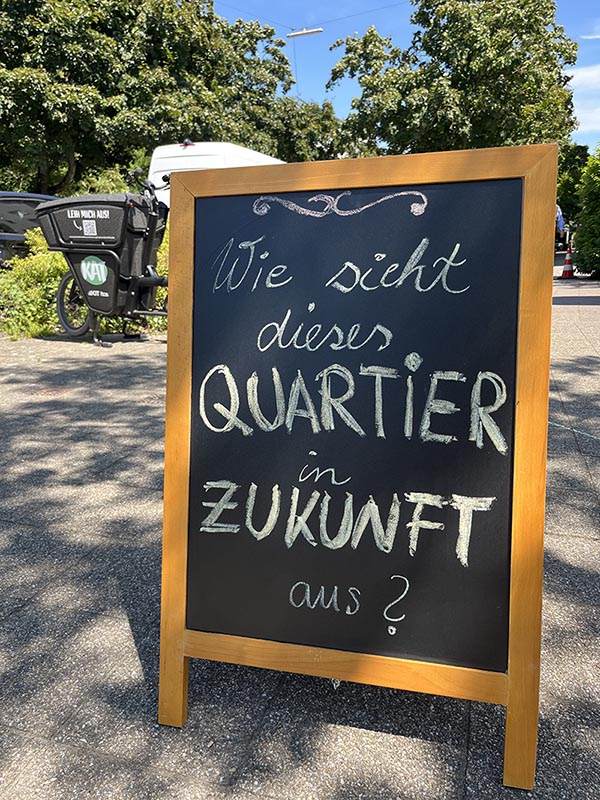 LEIH MICH AUS!
KATI
Wie sieht
dieses
QUARTIER
in
ZUKUNFT
aus?